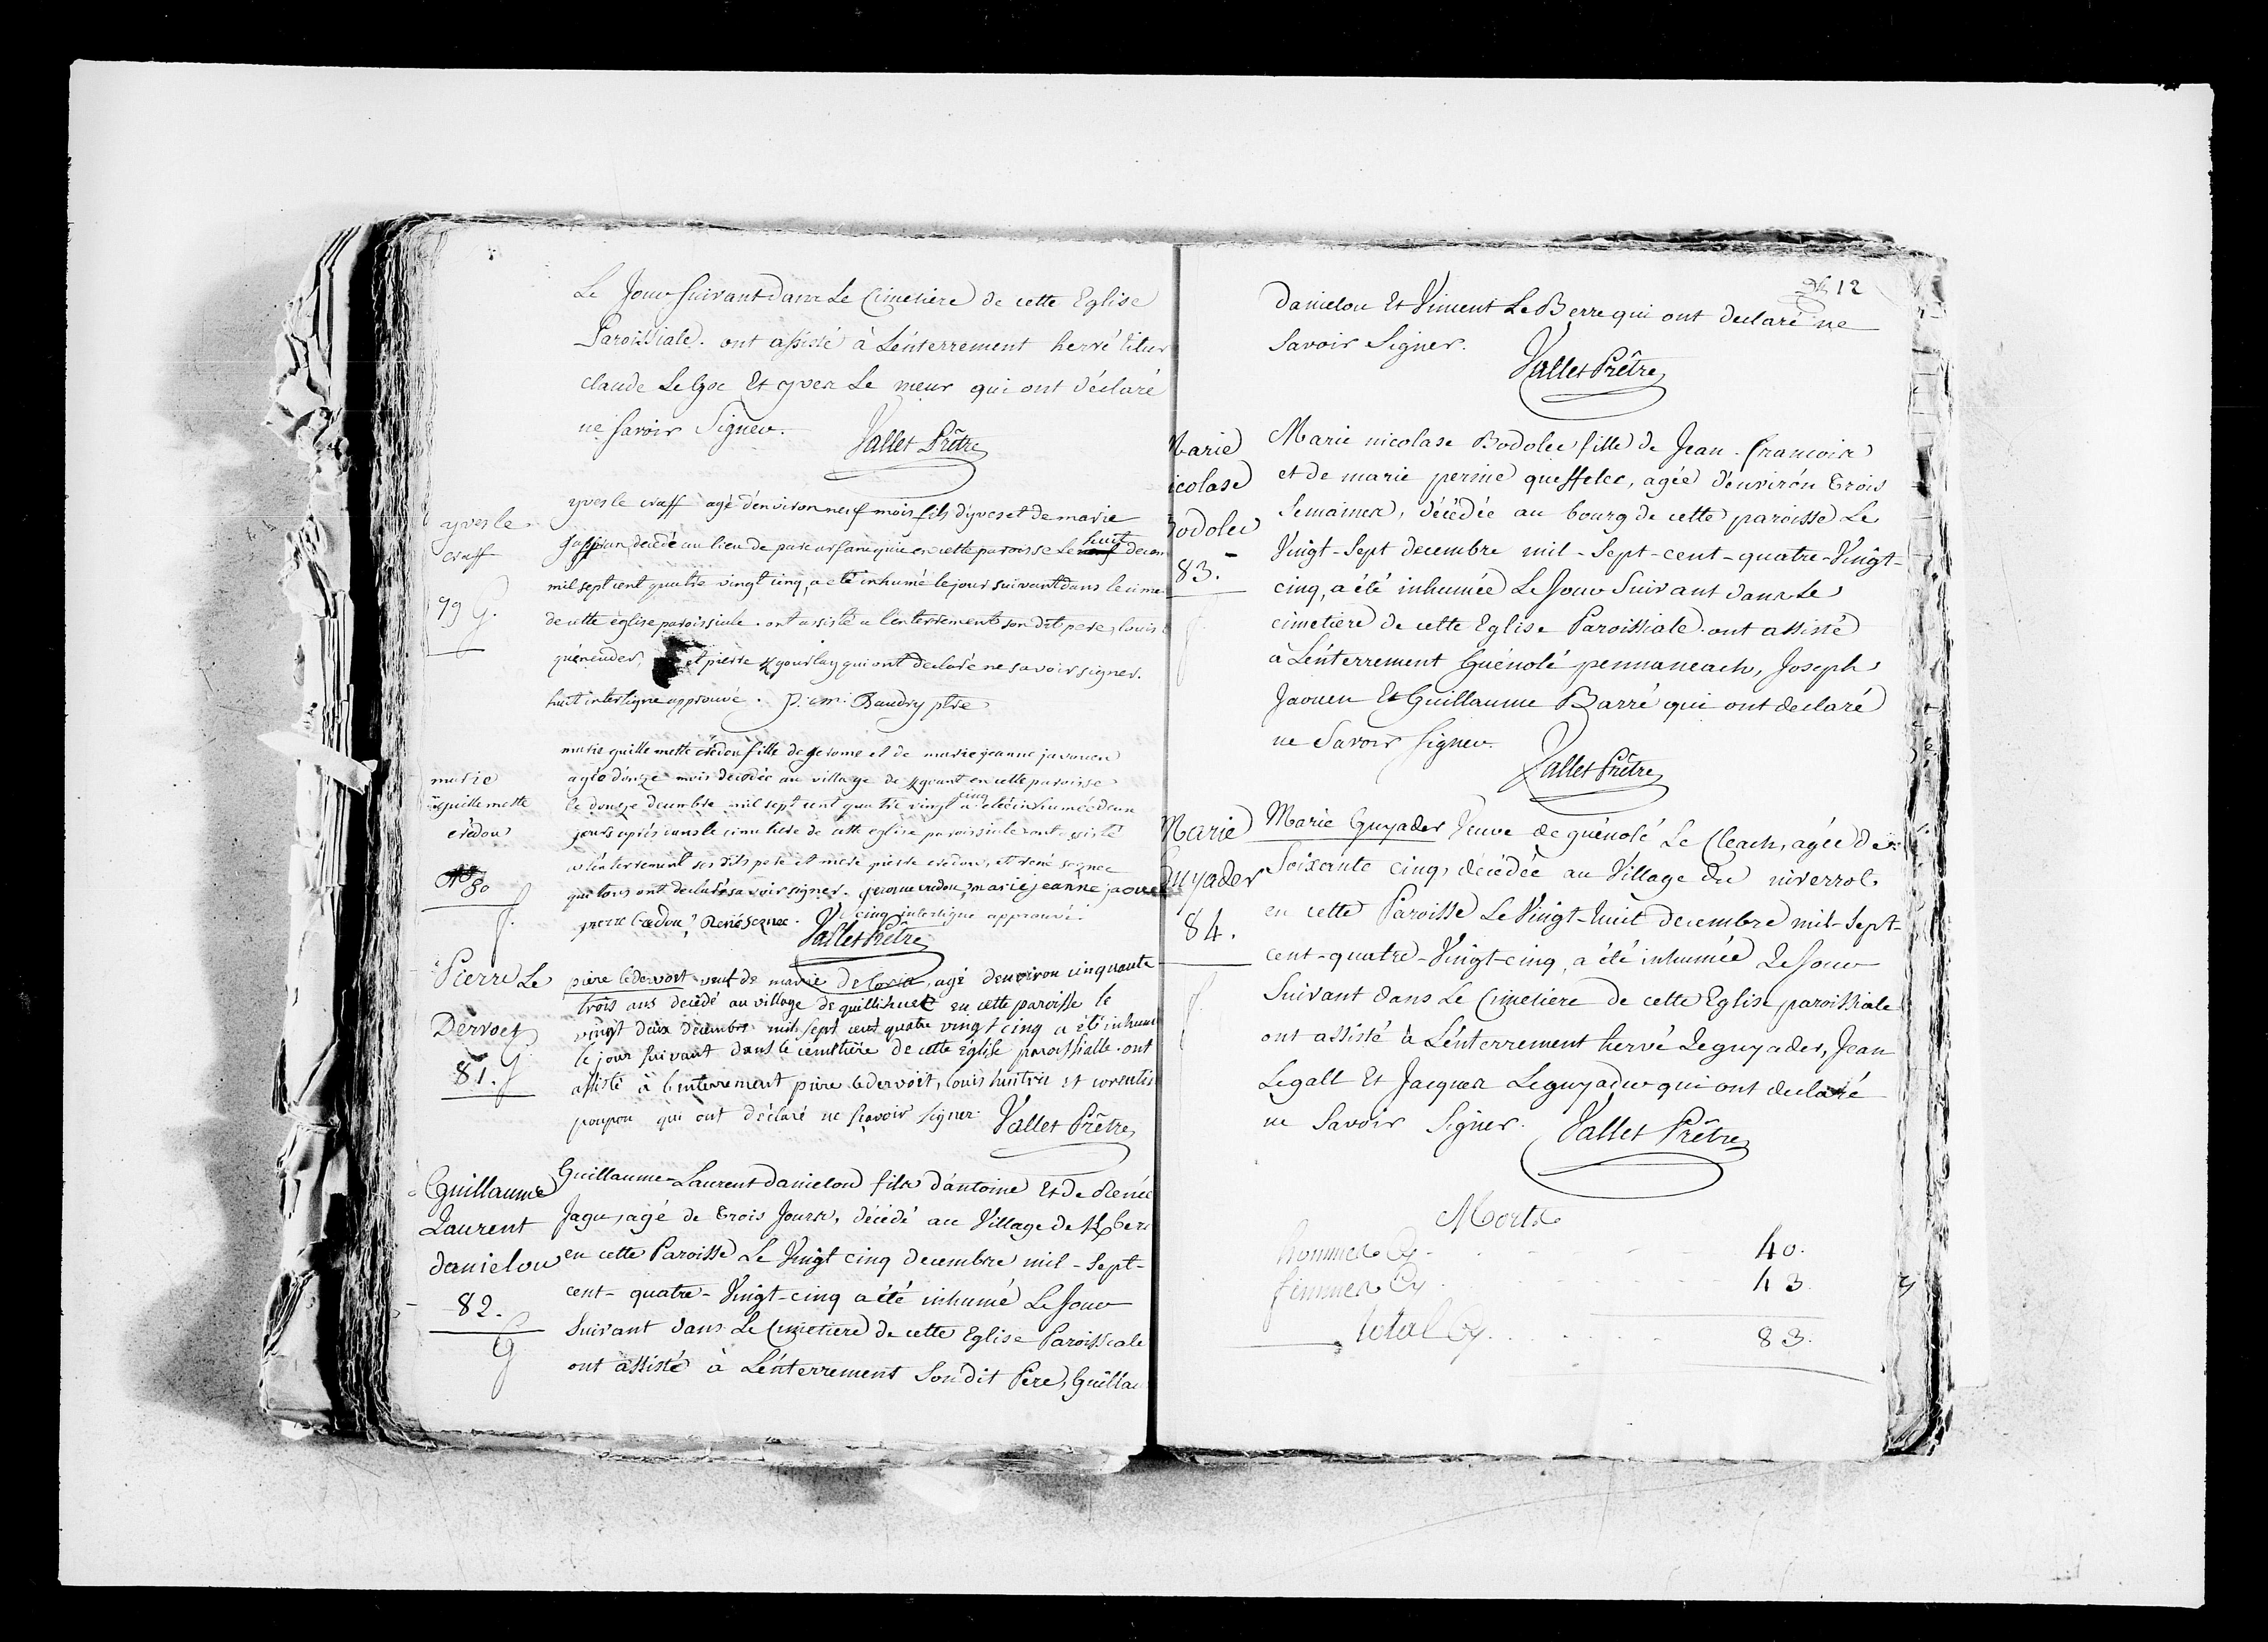 Le Jour Suivant dans Le Cimetière de cette Eglise
Paroissiale. ont assisté à L'énterrement hervé
claude Le Goc Et yves Le meur qui ont déclaré
ne Savoir Signer.
Vallet Prêtre
yves le
craff
79 G.
yves le craff agé d'environ neuf mois fils d'yves et de marie
decedé au lieu de en cette paroisse le neuf huit decem
mil sept cent quatre vingt cinq, a eté inhumé le jour suivant dans le cime
de cette église paroissiale. ont assisté a l'enterrement son dit pere, louis
quéneuder, et pierre Kgourlay qui ont declaré ne savoir signer.
huit interligne approuvé. P. m. Baudry ptre
marie
guillemette
crédou
80
f.
marie guillemette crédou fille de jerome et de marie jeanne javouen
agée d'onze mois decedée au village de en cette paroisse
le douze decembre mil sept cent quatre vingt cinq a eté inhumée deux
jours après dans le cimetiere de cette eglise paroissiale ont assisté
a l'enterrement ses dits pere et mere pierre credou, et rené seznec
qui tous ont declaré savoir signer. jerome credou, marie jeanne jaoue
pierre Credou, René Seznec. cinq interligne approuvé.
Vallet Prêtre
Pierre Le
Dervoet
81. G
piere ledervoet veuf de marie, agé d'environ cinquante
trois ans decédé au village de quillihuec en cette paroisse le
vingt deux décembre mil sept cent quatre vingt cinq a été inhumé
le jour suivant dans le cémétière de cette église paroissialle. ont
assisté à l'enterrement piere ledervoit, louis et corentin
poupon qui ont déclaré ne sçavoir signer. Vallet Prêtre
Guillaume
Laurent
danielou
82.
G
Guillaume-Laurent danielou fils d'antoine Et de Renée
Jagu, agé de Trois Jours, décédé au Village de Kber
en cette Paroisse Le Vingt cinq decembre mil-Sept-
cent-quatre-Vingt-cinq a été inhumé Le Jour
Suivant dans Le Cimetiere de cette Eglise Paroissiale
ont assisté à L'énterrement Son dit Père, Guillau
12
Danielou Et Vincent Le Berre qui ont declaré ne
Savoir Signer.
Vallet Prêtre
Marie
icolase
Bodolec
83.
f
Marie nicolase Bodolec fille de Jean-francois
et de marie perine queffelec, agée d'environ Trois
Semaines, décédée au bourg de cette paroisse Le
Vingt-Sept decembre mil-Sept-cent-quatre-Vingt-
cinq, a été inhumée Le Jour Suivant dans Le
cimetiere de cette Eglise Paroissiale. ont assisté
à L'énterrement Guénolé pennaneach, Joseph
Jaouen Et Guillaume Barré qui ont declaré
ne Savoir Signer.
Vallet Prêtre
Marie
Guyader
84.
f
Marie Guyader Veuve de guénolé Le Cleach, agée de
Soixante cinq, décédée au Village du niverrot
en cette Paroisse Le Vingt-huit decembre mil-Sept-
cent-quatre-Vingt-cinq, a été inhumée Le Jour
Suivant dans Le Cimetiere de cette Eglise paroissiale
ont assisté à L'énterrement hervé Le guyader, Jean
Le gall Et Jacques Le guyader qui ont declaré
ne Savoir Signer. Vallet Prêtre
Morts
hommes Cy 40.
femmes Cy 43.
Total Cy 83.